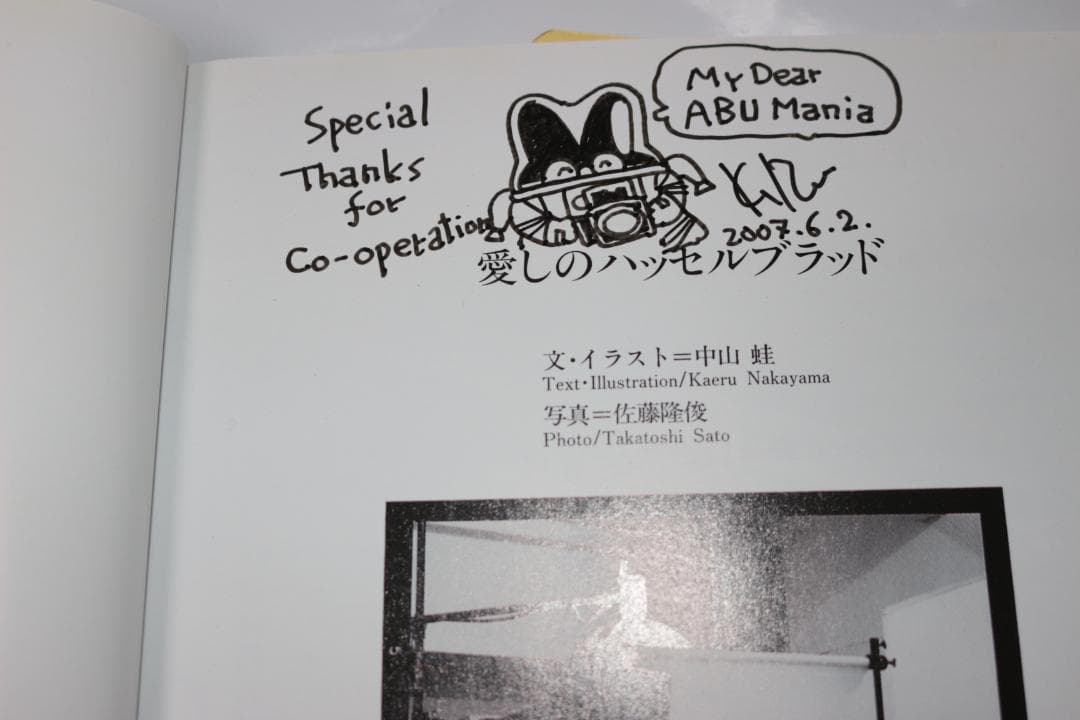 Special
Thanks
for
Co-operation
My Dear
ABU Mania
2007.6.2.
愛しのハッセルブラッド
文・イラスト＝中山 蛙
Text・Illustration/Kaeru Nakayama
写真＝佐藤隆俊
Photo/Takatoshi Sato